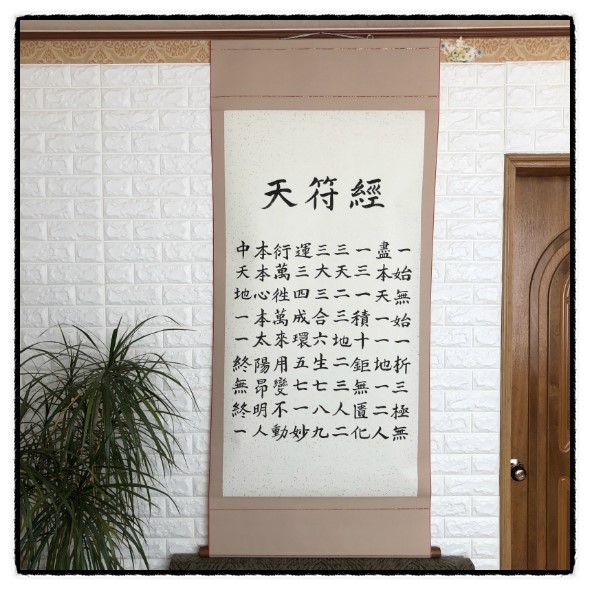 天符經
一始無始一折三極無
盡本天一一地一二人
一三一積十鉅無匱化
三天二三地二三人二
三大三合六生七八九
運三四成環五七一妙
衍萬徃萬來用變不動
本本心本太陽昂明人
中天地一一終無終一